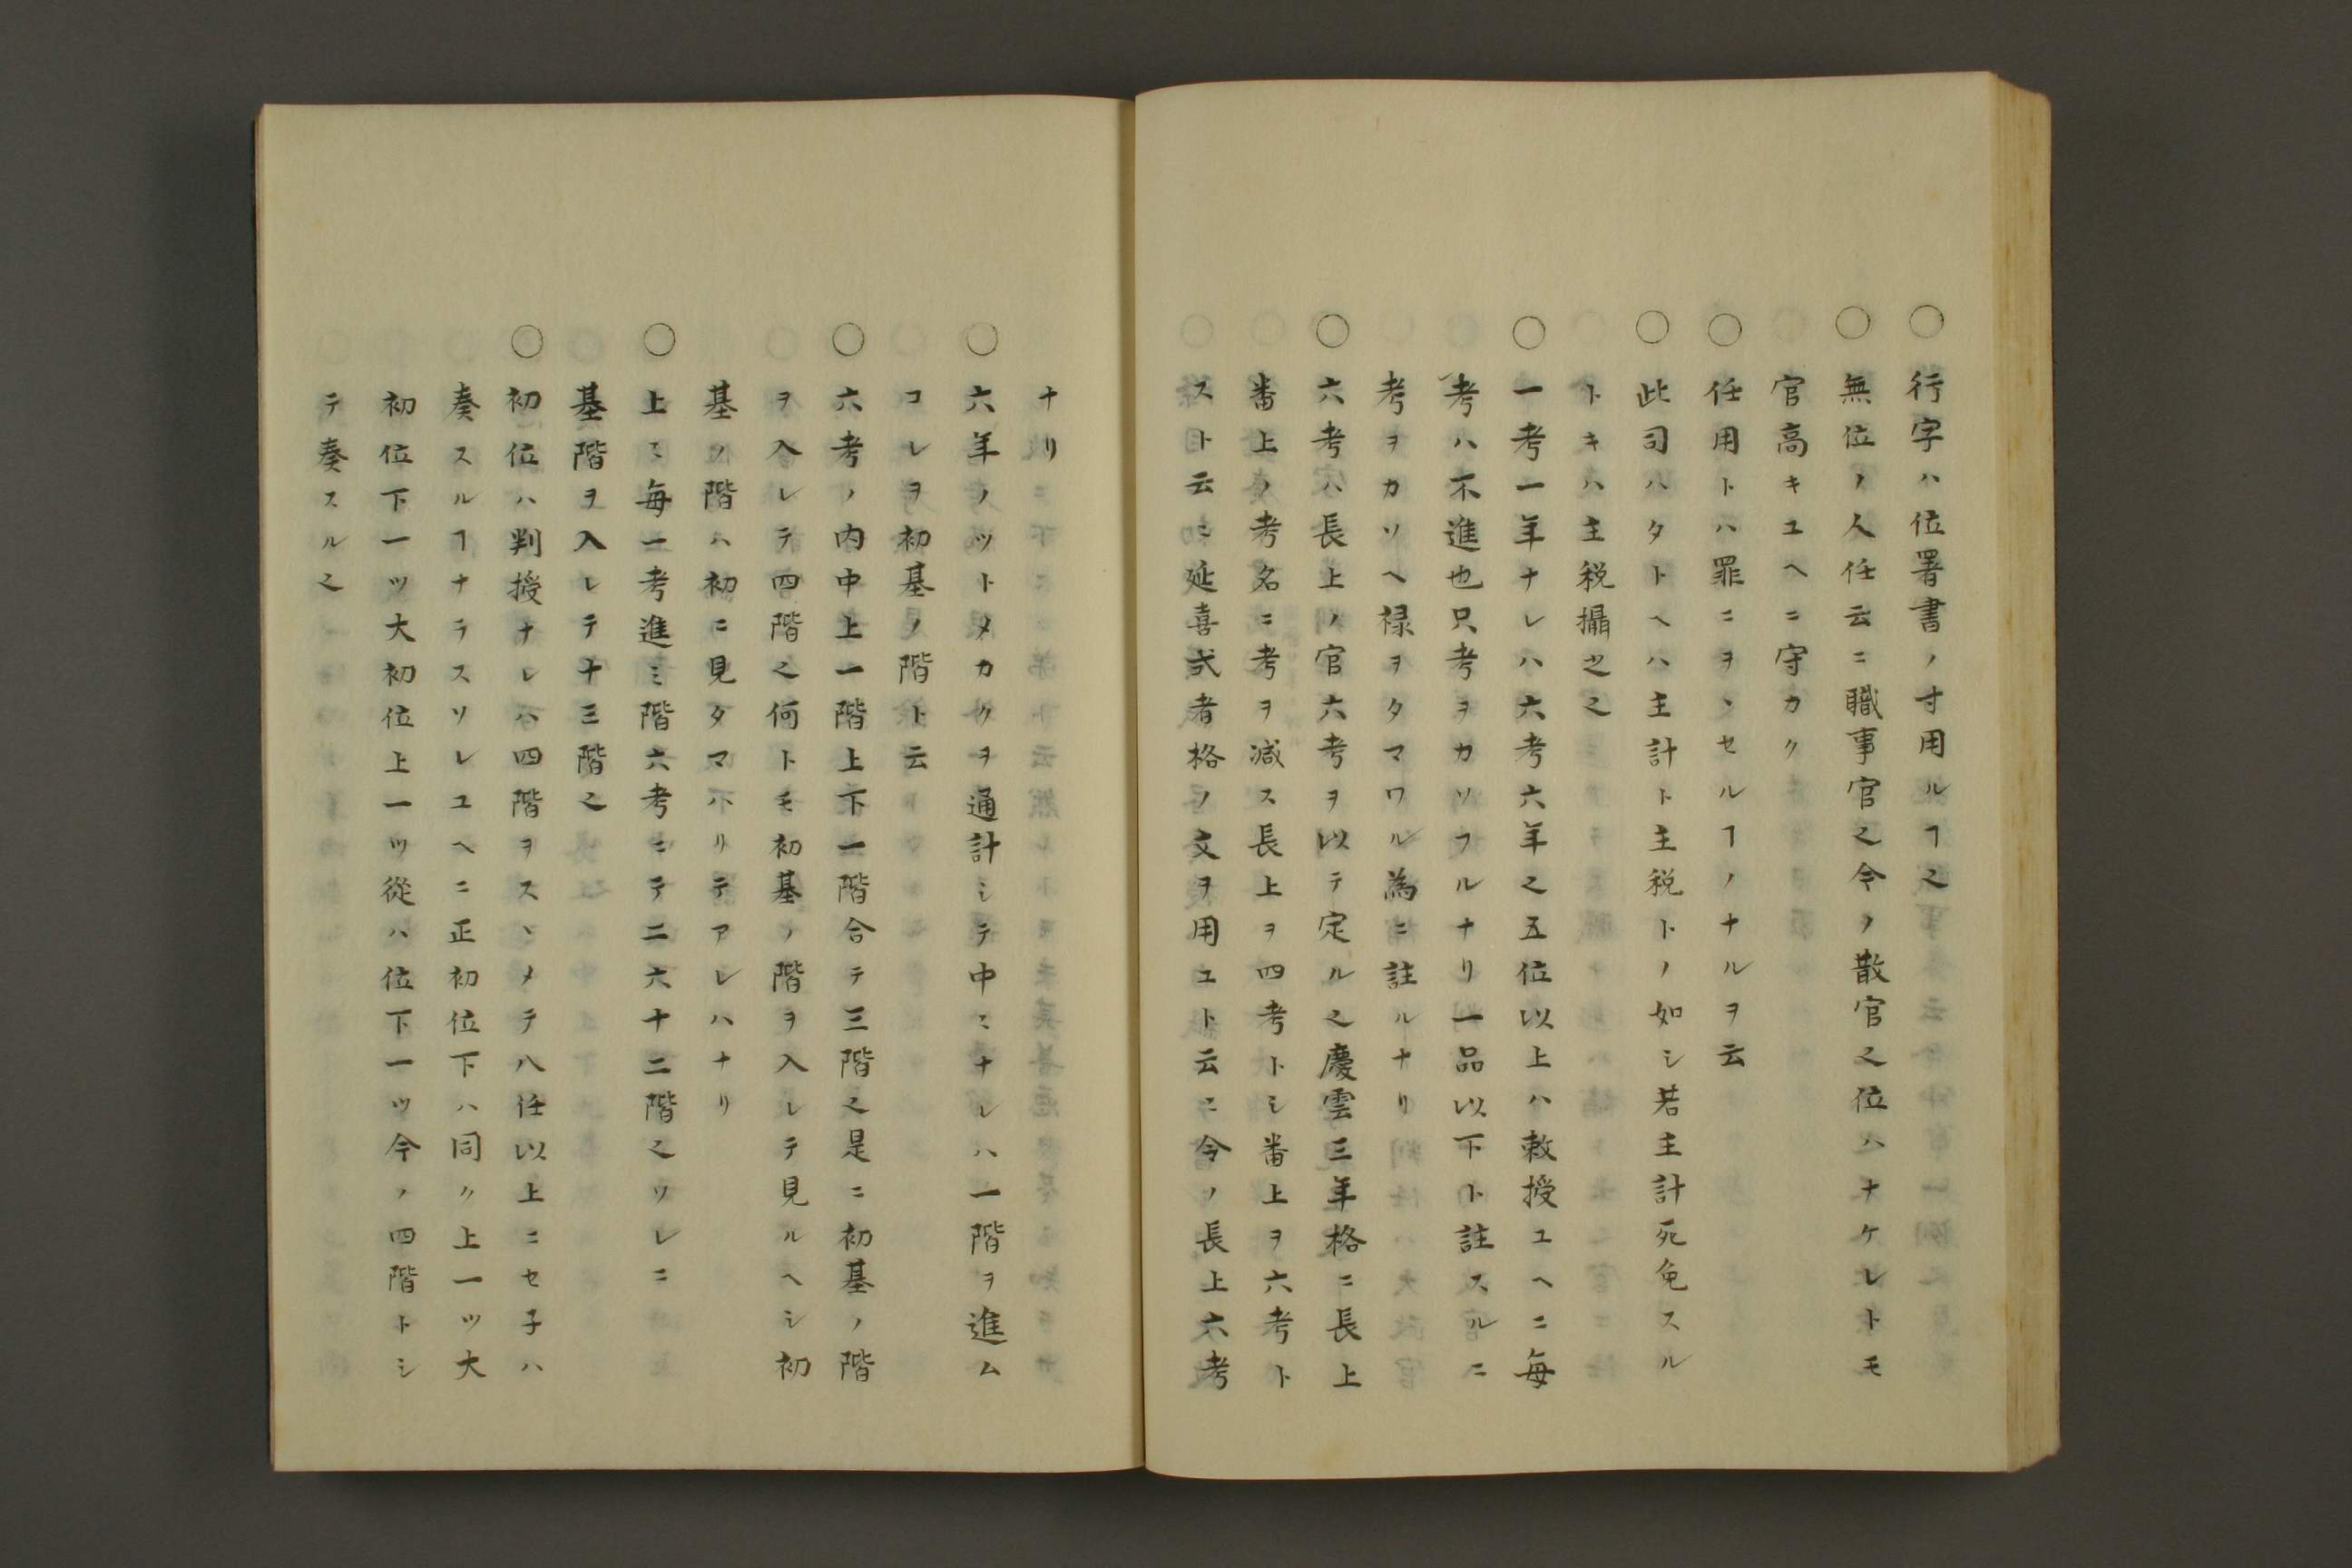 ○行字ハ位署書ノ寸用ルヿ之
○無位ノ人任云ニ職事官之令ノ散官之位ハナケレトモ
官高キユヘニ守カク
○任用トハ罪ニヲヽセルヿノナルヲ云
○此司ハタトヘハ主計ト主税トノ如シ若主計死免スル
トキハ主税攝之
○一考一年ナレハ六考六年之五位以上ハ敕授ユヘニ毎
考ハ不進也只考ヲカソフルナリ一品以下ト註スルニ
考ヲカソヘ禄ヲタマワル為ニ註ルナリ
○六考ハ長上ノ官六考ヲ以テ定ル之慶雲三年格ニ長上
番上ノ考名ニ考ヲ減ス長上ヲ四考トシ番上ヲ六考ト
スト云ニ延喜式者格ノ文ヲ用ユト云ニ令ノ長上六考
ナリ
○六年ノツトメカクヲ通計シテ中ニナレハ一階ヲ進ム
コレヲ初基ノ階ト云
○六考ノ内中上一階上下一階合テ三階之是ニ初基ノ階
ヲ入レテ四階之何トモ初基ノ階ヲ入レテ見ルヘシ初
基ノ階ハ初ニ見タマハリテアレハナリ
○上ニ毎一考進ミ階六考ニテ二六十二階之ソレニ
基階ヲ入レテ十三階之
○初位ハ判授ナレハ四階ヲスヽメテ八任以上ニセ子ハ
奏スルヿナラスソレユヘニ正初位下ハ同ク上一ッ大
初位下一ッ大初位上一ッ從ハ位下一ッ今ノ四階トシ
テ奏スル之